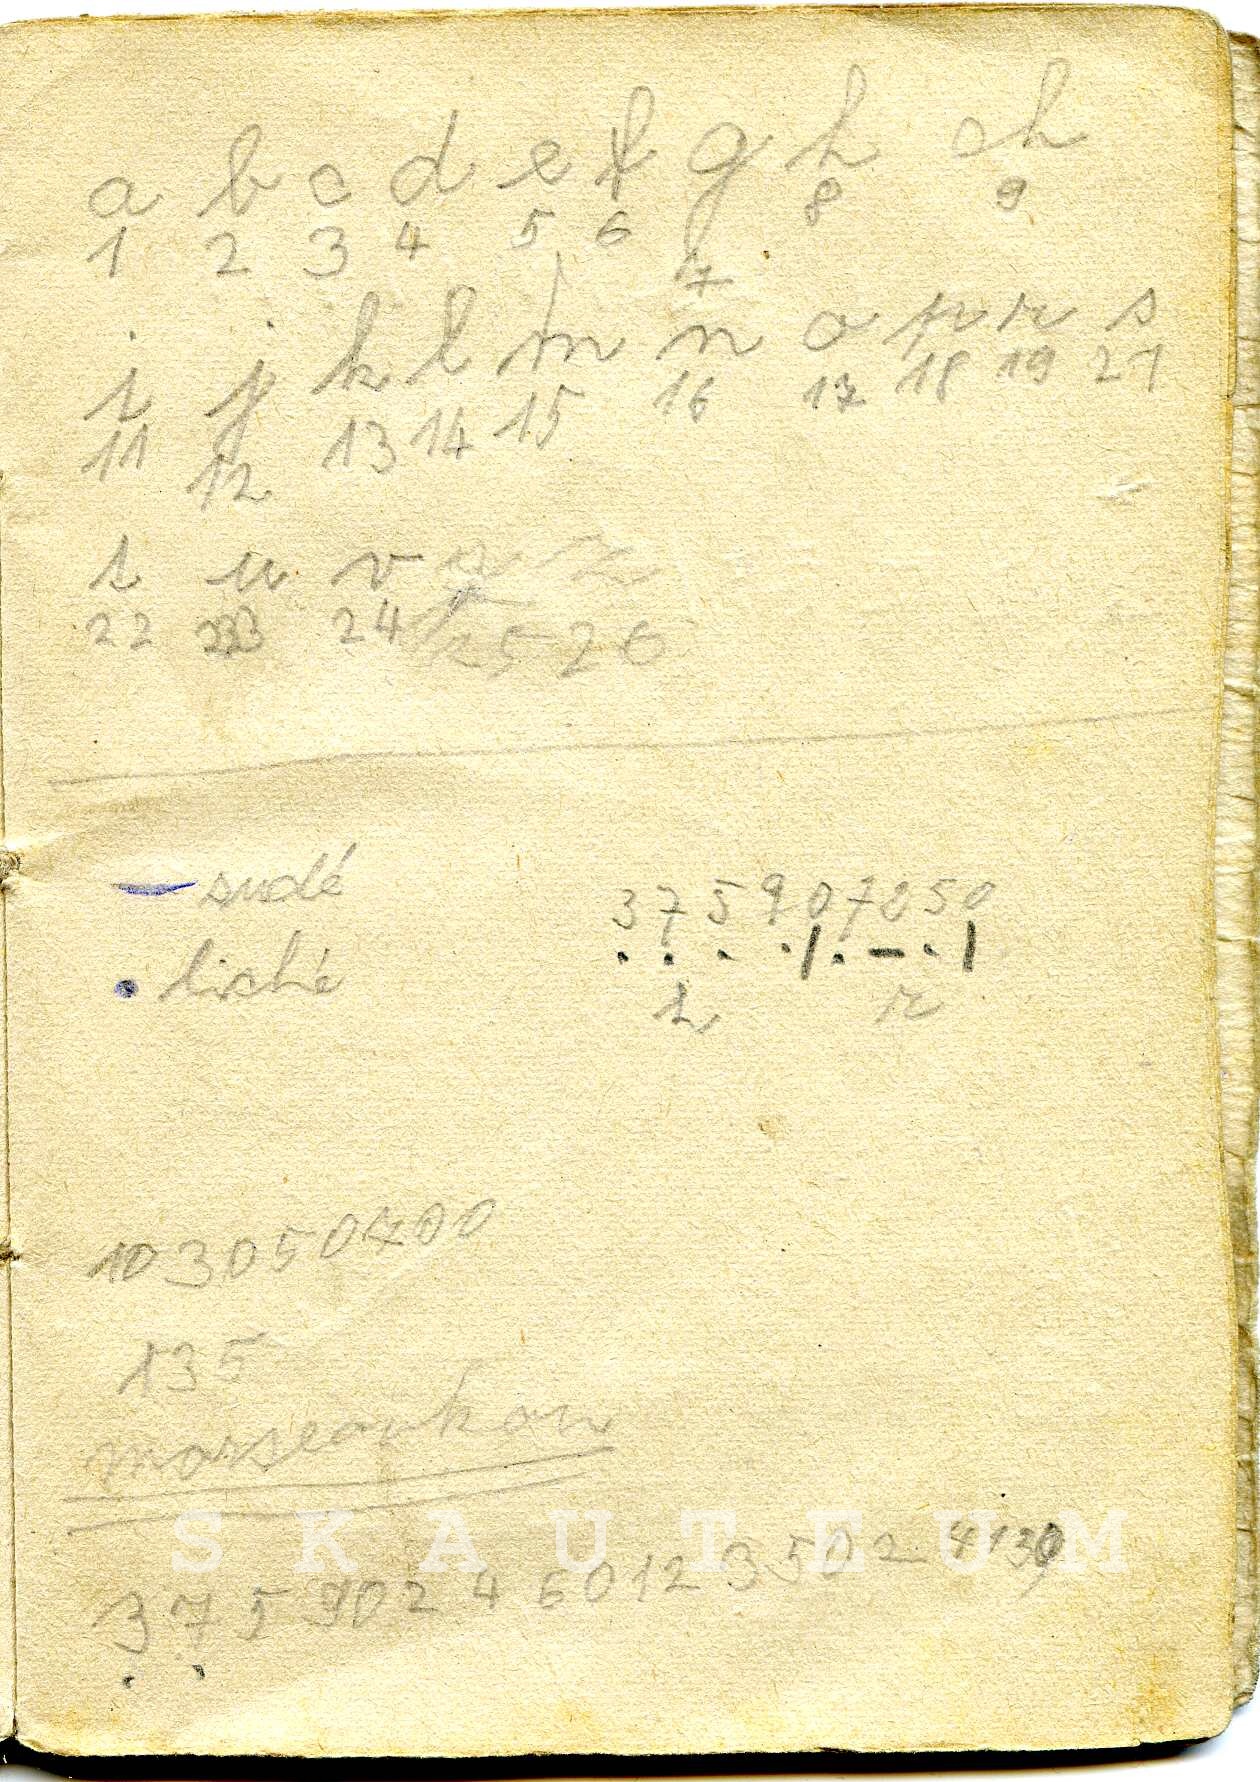 a b c d e f g h ch
1 2 3 4 5 6 7 8 9
i j k l m n o p r s
11 12 13 14 15 16 17 18 19 21
t u v
22 23 24 25 26
— sudé
• liché
375907850
. . . . / . – . |
h r
103050400
135
3 7 5 9 0 2 4 6 0 1 2 3 5 0 2 4 1 3 0
. .
SKAUTEUM